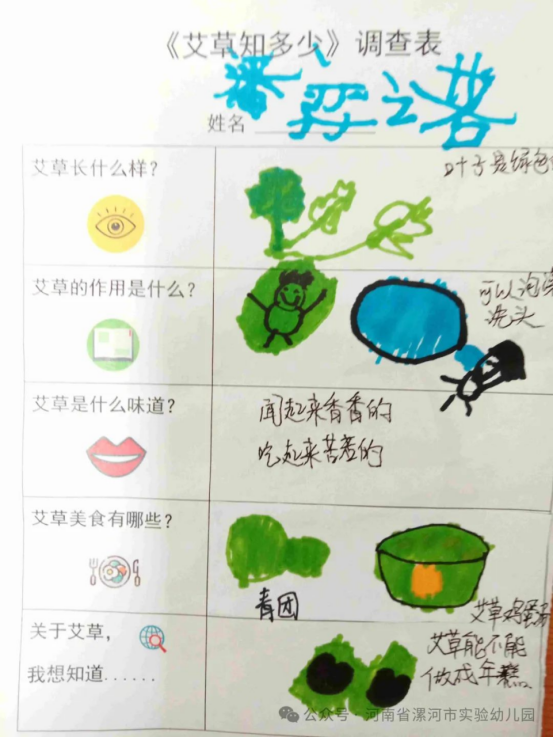 《艾草知多少》调查表
姓名
艾草长什么样?
叶子是绿色
艾草的作用是什么?
可以泡澡
洗头
艾草是什么味道?
闻起来香香的
吃起来苦苦的
艾草美食有哪些?
青团
艾草鸡蛋
关于艾草,
我想知道......
艾草能不能
做成年糕
公众号·河南省漯河市实验幼儿园